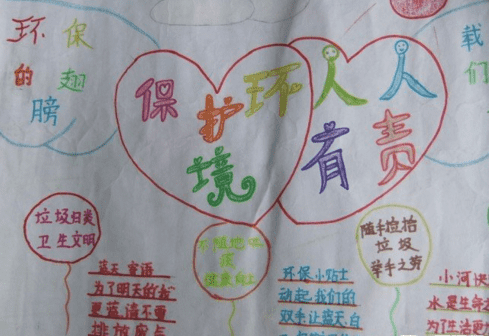 环保
的翅
膀
保护环
境
人人
有责
载
们
垃圾归类
卫生文明
不随地吐
痰
随手捡拾
垃圾
举手之劳
蓝天寄语
为了明天的我
更蓝请不要
排放废气
环保小贴士
动起我们的
双手让蓝天白
小河快
水是生命
为了生活更